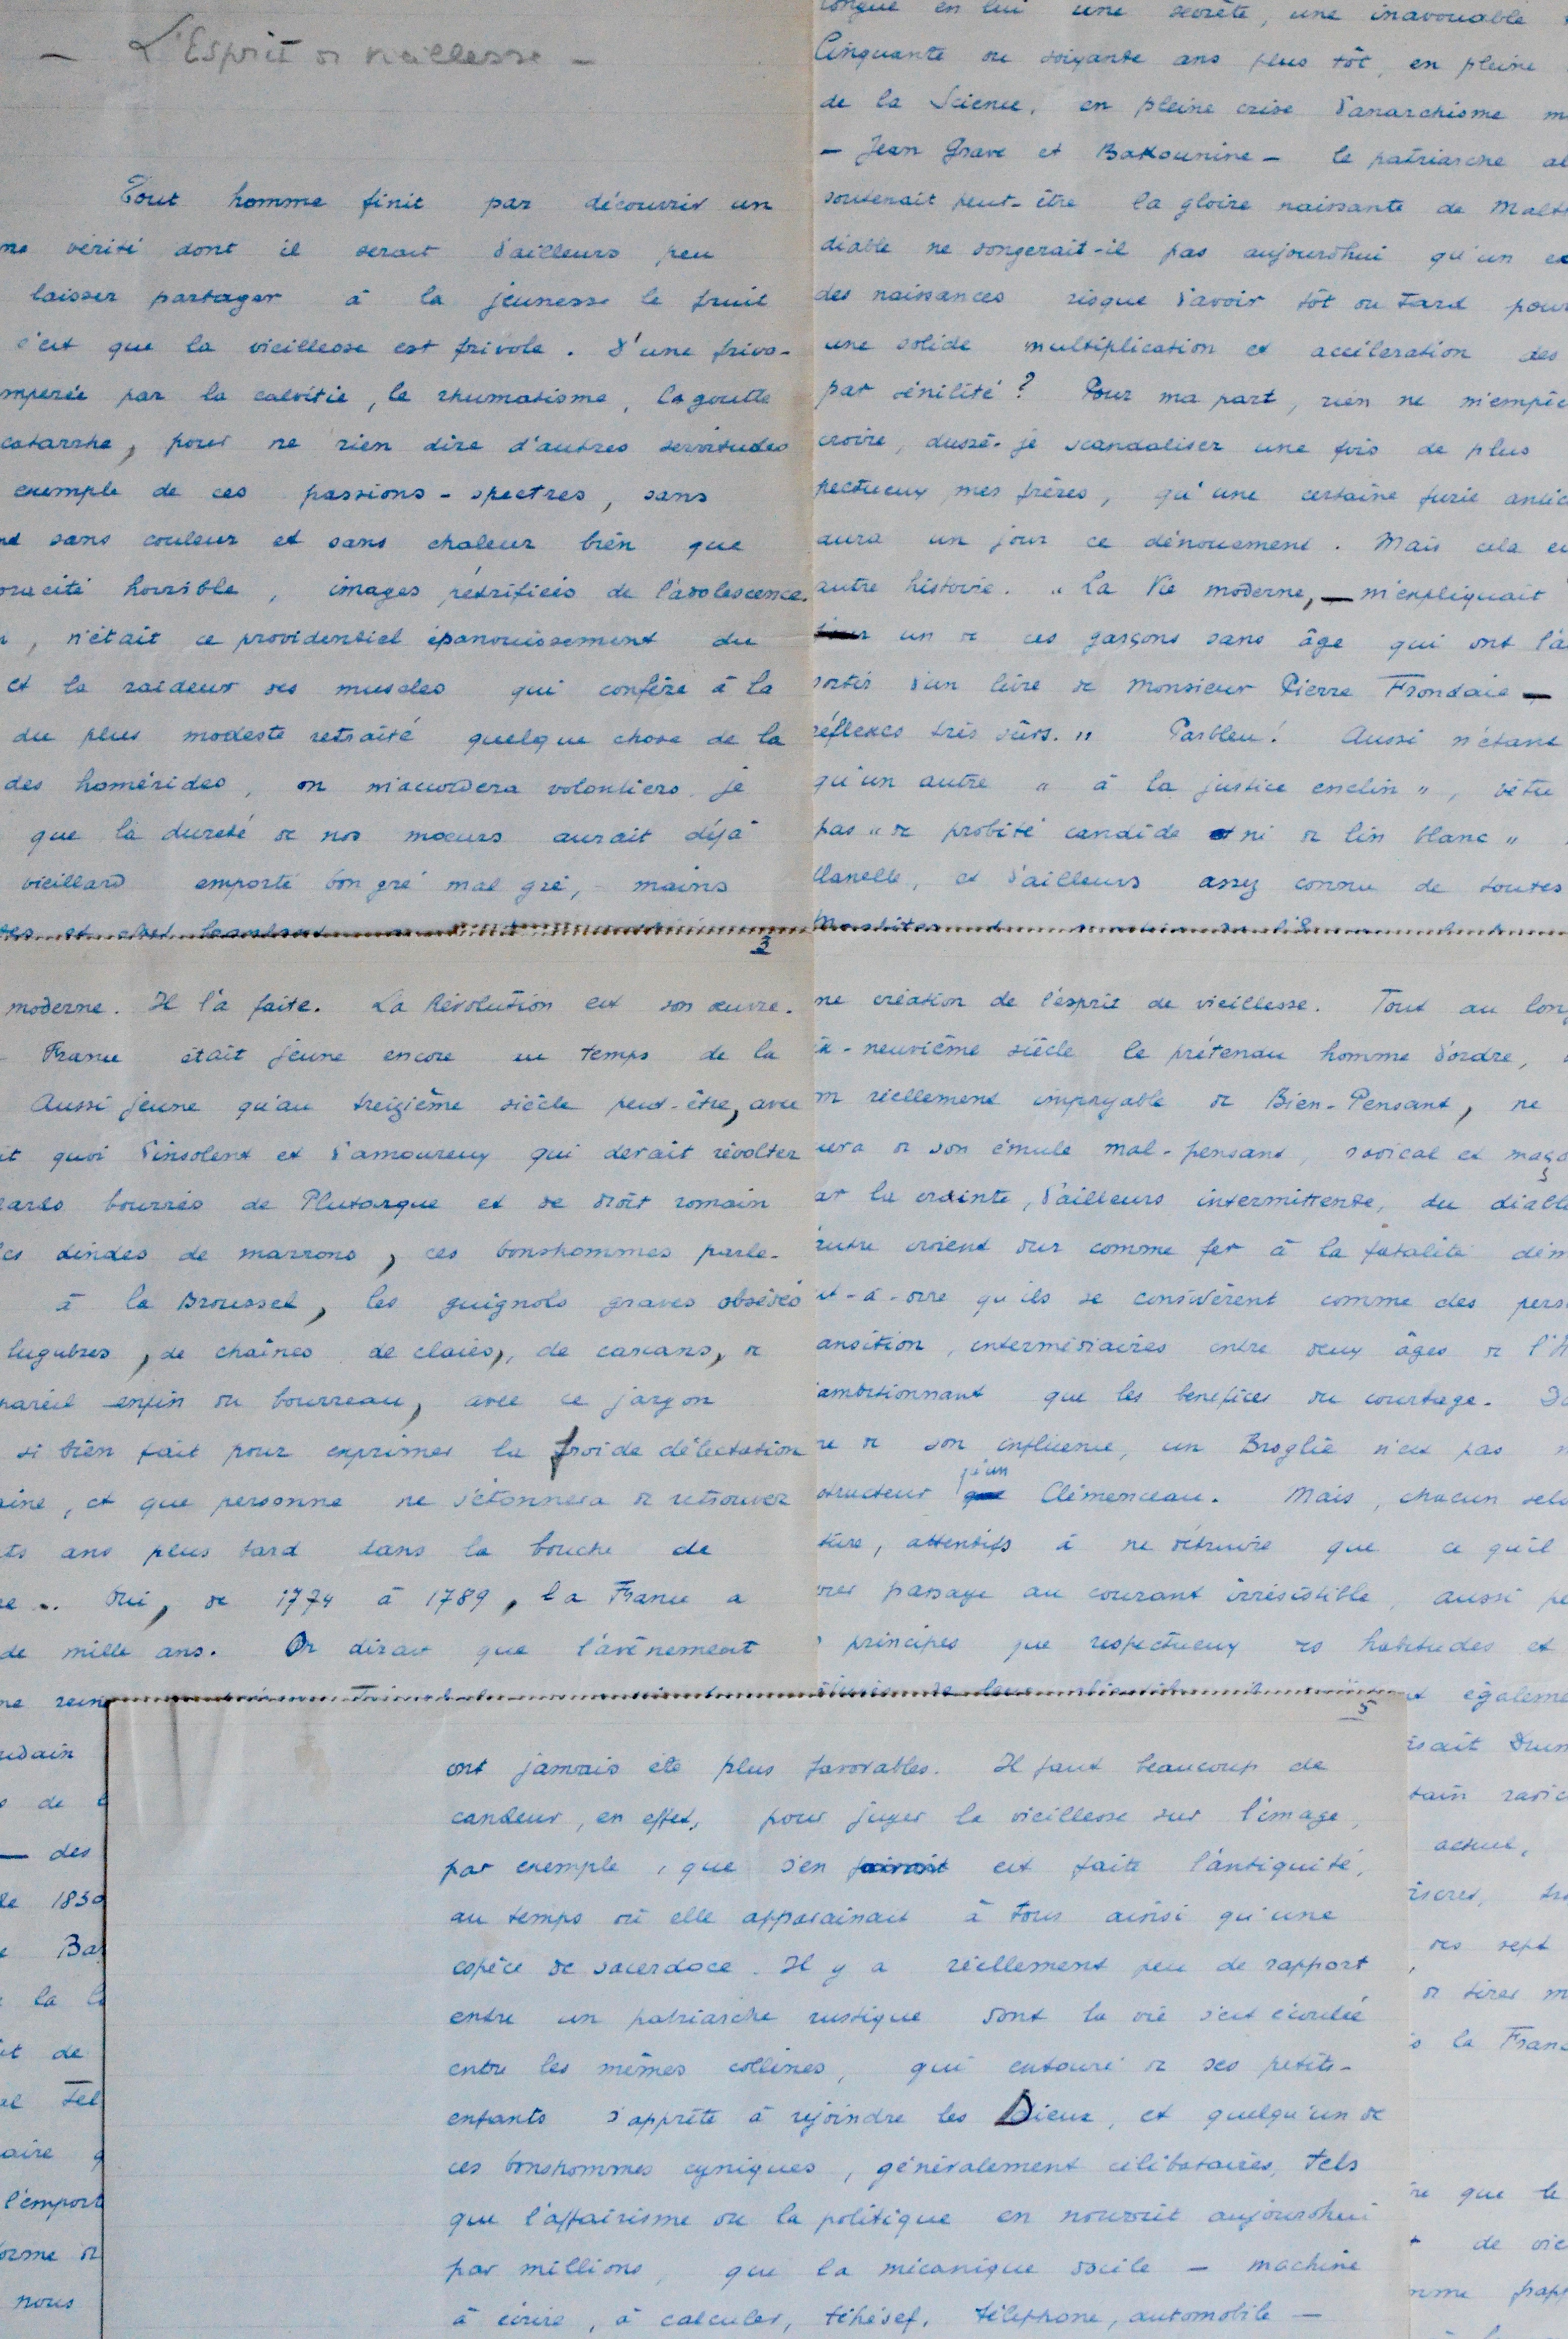 - L'Esprit de vieillesse -
Tout homme finit par découvrir un
vérité dont il serait d'ailleurs peu
laisser partager à la jeunesse le fruit
c'est que la vieillesse est frivole. D'une frivo-
mpérée par la calvitie, le rhumatisme, la goutte
catarrhe, pour ne rien dire d'autres servitudes
exemple de ces passions-spectres, sans
sans couleur et sans chaleur bien que
oracité horrible, images pétrifiées de l'adolescence.
, n'était ce providentiel épanouissement du
et la raideur des muscles qui confère à la
du plus modeste retraité quelque chose de la
des homérides, on m'accordera volontiers je
que la dureté de nos mœurs aurait déjà
vieillard emporté bon gré mal gré, mains
longue en lui une secrète, une inavouable
Cinquante ou soixante ans plus tôt, en pleine
de la Science, en pleine crise d'anarchisme m
- Jean Grave et Bakounine - le patriarche al
soutenait peut-être la gloire naissante de Malt
diable ne songerait-il pas aujourd'hui qu'un ex
des naissances risque d'avoir tôt ou tard pour
une solide multiplication et accélération des
par sénilité? Pour ma part, rien ne m'empêc
croire, dussé-je scandaliser une fois de plus
pectueux mes frères, qu'une certaine furie antic
aura un jour ce dénouement. Mais cela es
autre histoire. "La Vie moderne, — m'expliquait
un de ces garçons sans âge qui ont l'a
sortir d'un livre de Monsieur Pierre Frondaie —
réflexes très sûrs." Parbleu! Aussi n'étant
qu'un autre "à la justice enclin", vêtu
pas "de probité candide ni de lin blanc"
flanelle, et d'ailleurs assez connu de toutes
3
moderne. Il l'a faite. La Révolution est son œuvre.
France était jeune encore au temps de la
Aussi jeune qu'au treizième siècle peut-être, avec
it quoi d'insolent et d'amoureux qui devait révolter
ards bourrés de Plutarque et de droit romain
es dindes de marrons, ces bonshommes parle-
à la Broussel, les guignols graves obsédés
lugubres, de chaînes de claies, de carcans, de
pareil enfin du bourreau, avec ce jargon
si bien fait pour exprimer la froide délectation
aine, et que personne ne s'étonnera de retrouver
ts ans plus tard dans la bouche de
re.. Oui, de 1774 à 1789, la France a
de mille ans. On dirait que l'avènement
ne reine
udain
s de
— des
le 1830
e Ba
la l
it de
al Tel
aire q
l'emport
orme de
nous
ne création de l'esprit de vieillesse. Tout au long
x-neuvième siècle le prétendu homme d'ordre,
m réellement impayable de Bien-Pensant, ne
uera de son émule mal-pensant, radical et maço
ar la crainte, d'ailleurs intermittente, du diable
autre croient dur comme fer à la fatalité dém
st-à-dire qu'ils se considèrent comme des pers
ansition, intermédiaires entre deux âges de l'H
ambitionnant que les bénéfices du courtage. Da
re de son influence, un Broglie n'est pas m
structeur qu'un Clémenceau. Mais, chacun selo
ture, attentifs à ne détruire que ce qu'il
vrer passage au courant irrésistible, aussi pe
principes que respectueux des habitudes et
t égaleme
isait Drum
tain radic
actuel,
des sept
de tirer m
s la Franc
re que le
de vie
mme frapp
5
ont jamais été plus favorables. Il faut beaucoup de
candeur, en effet, pour juger la vieillesse sur l'image,
par exemple, que s'en est faite l'antiquité,
au temps où elle apparaissait à tous ainsi qu'une
espèce de sacerdoce. Il y a réellement peu de rapport
entre un patriarche rustique dont la vie s'est écoulée
entre les mêmes collines, qui entouré de ses petits-
enfants s'apprête à rejoindre les Dieux, et quelqu'un de
ces bonshommes cyniques, généralement célibataires, tels
que l'affairisme ou la politique en nourrit aujourd'hui
par millions, que la mécanique docile — machine
à écrire, à calculer, téhésef, téléphone, automobile —